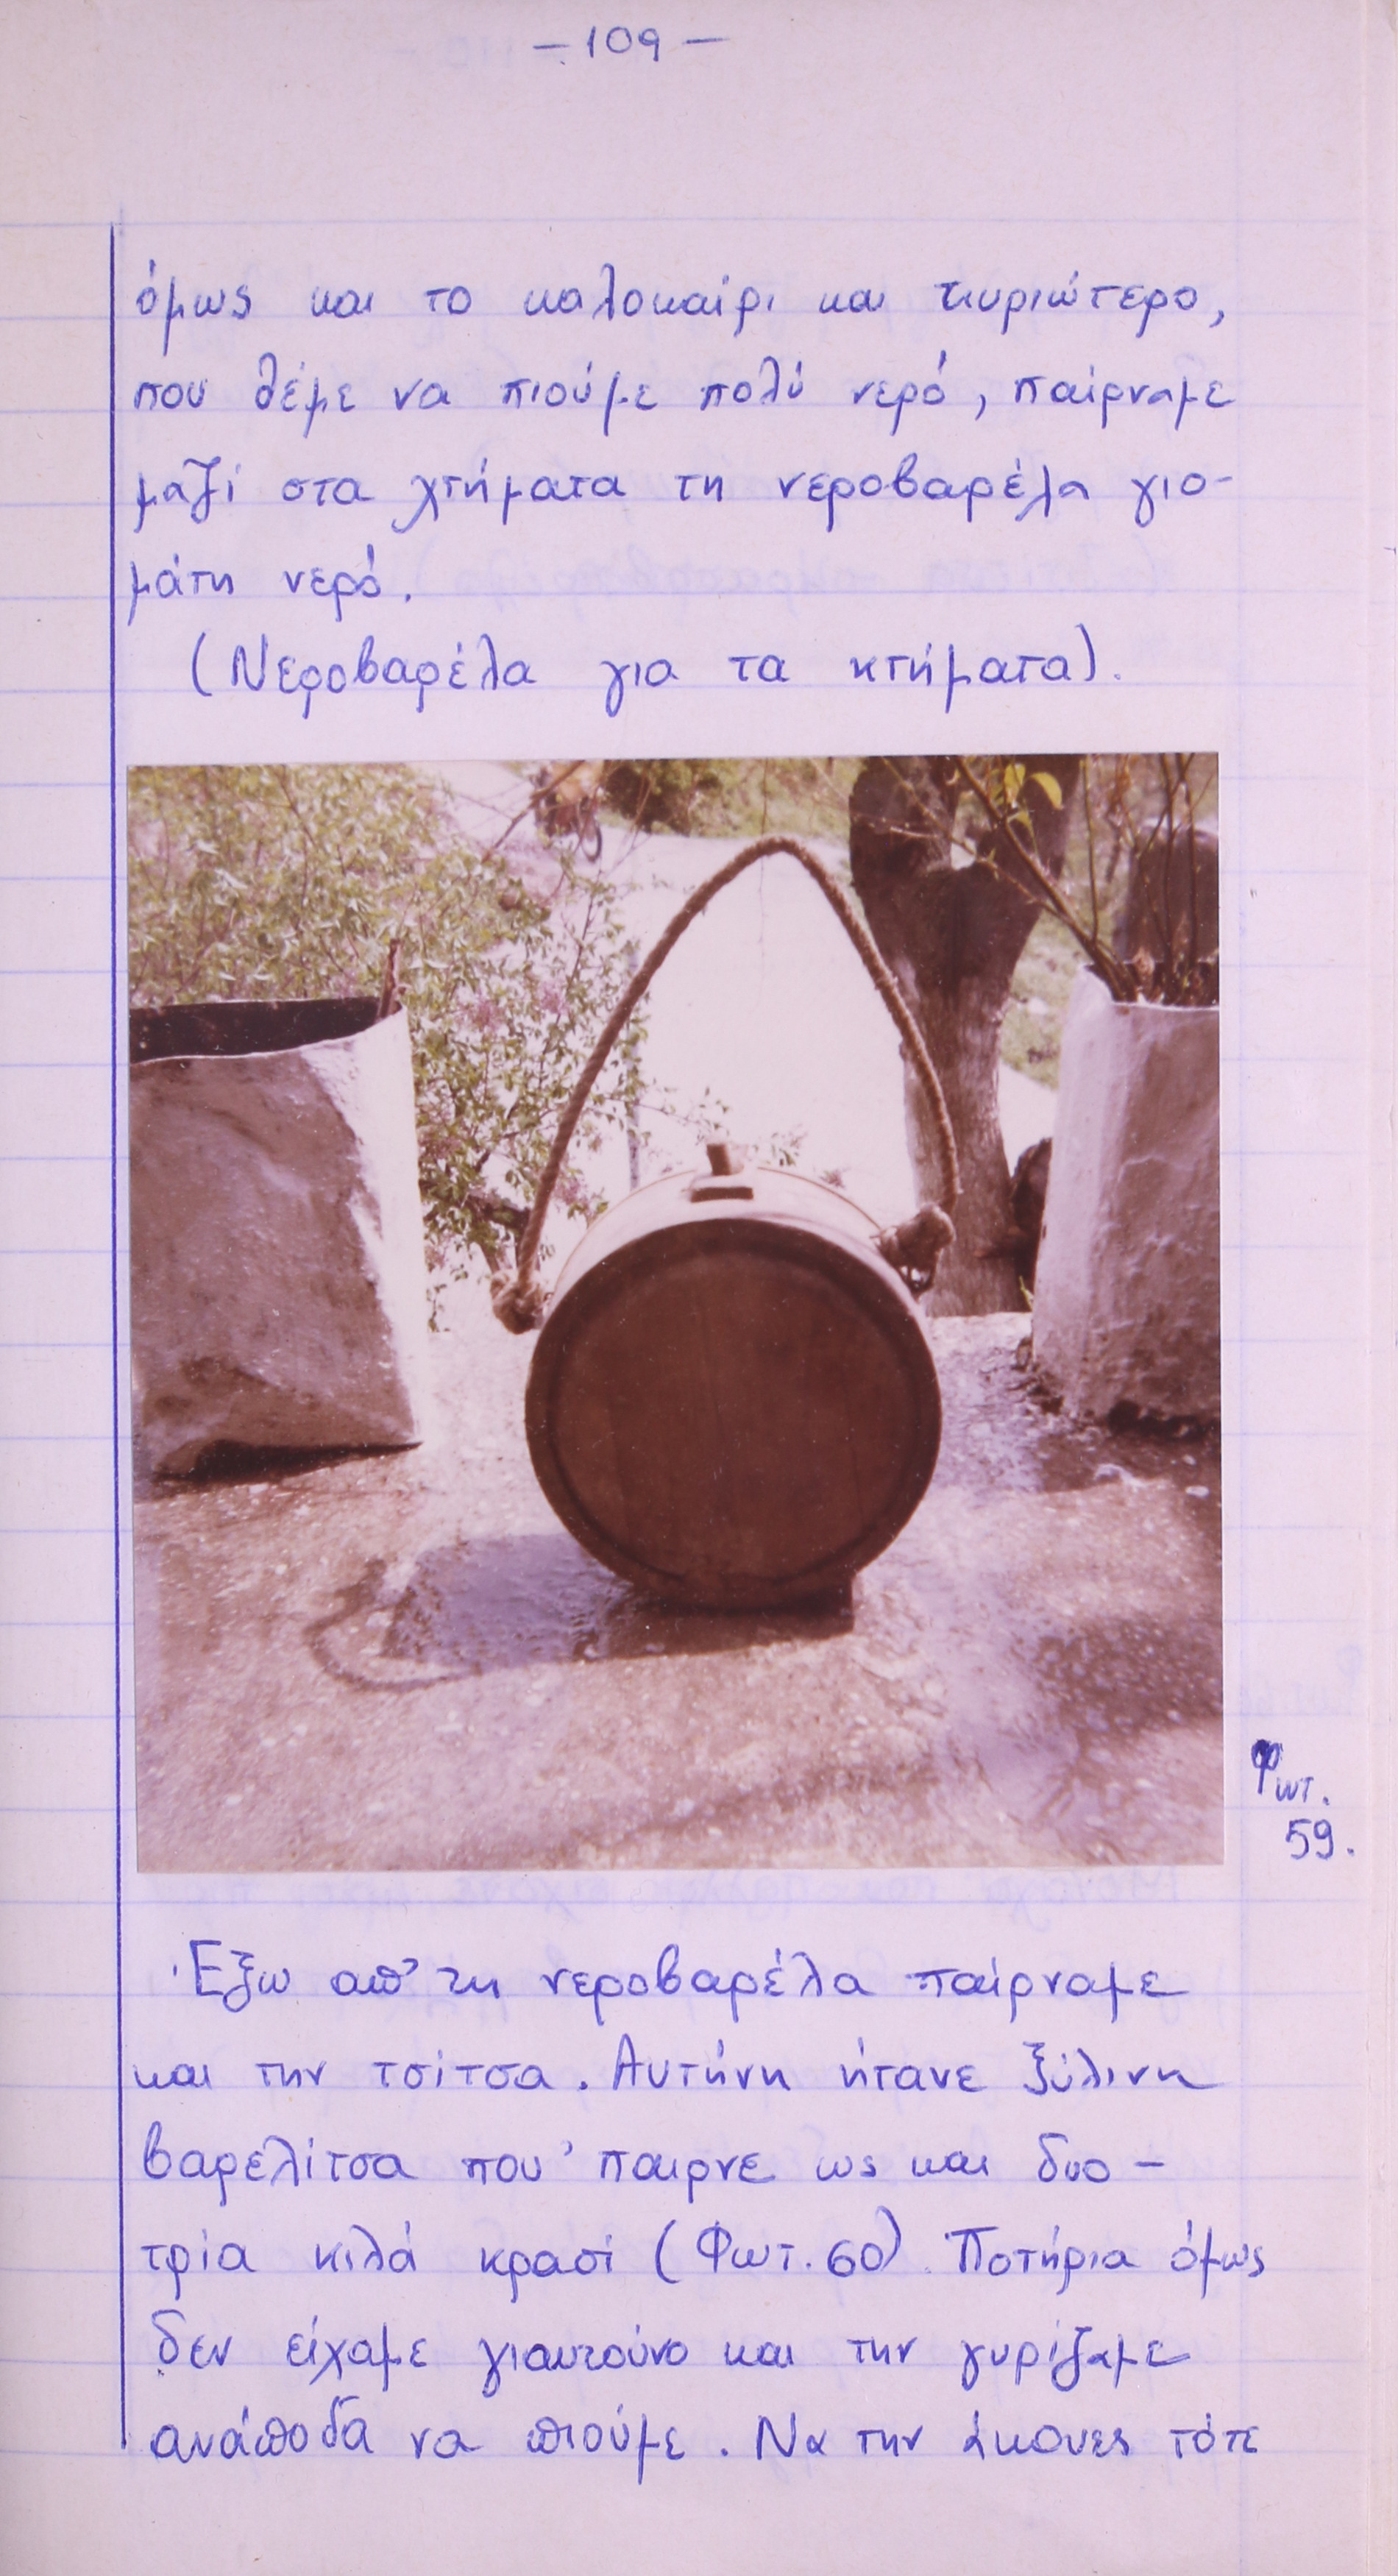 – 109 –
όμως και το καλοκαίρι και κυριώτερο,
που θέμε να πιούμε πολύ νερό, παίρναμε
μαζί στα χτήματα τη νεροβαρέλα γιο-
μάτη νερό.
(Νεροβαρέλα για τα κτήματα).
Φωτ.
59.
Έξω απ' τη νεροβαρέλα παίρναμε
και την τσίτσα. Αυτήνη ήτανε ξύλινη
βαρελίτσα που 'παιρνε ως και δυο –
τρία κιλά κρασί (Φωτ. 60). Ποτήρια όμως
δεν είχαμε γιαυτούνο και την γυρίζαμε
ανάποδα να πιούμε. Να την άκουες τότε